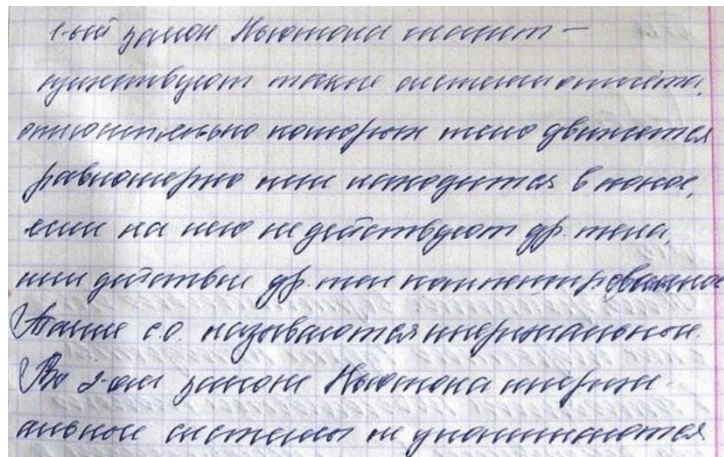 1-ый закон Ньютона гласит –
существуют такие системы отсчёта,
относительно которых тело движется
равномерно или находится в покое,
если на него не действуют др. тела,
или действие др. тел компенсировано
Такие с.о. называются инерциальные.
Во 2-ом законе Ньютона инерци-
альные системы не упоминаются